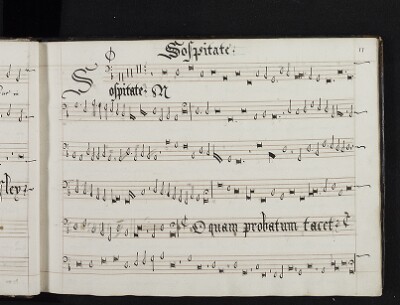 Sospitate:
11
Sospitate:
ley:
O quam probatum tacet: